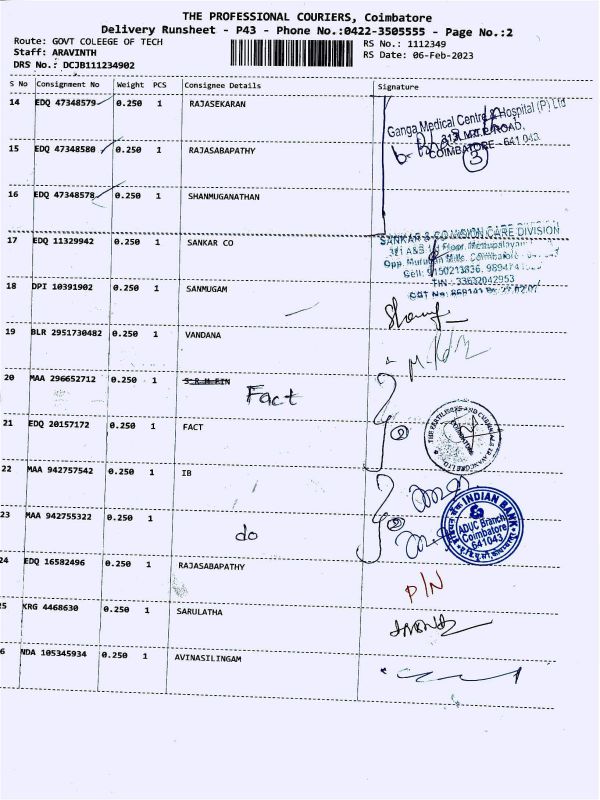 THE PROFESSIONAL COURIERS, Coimbatore
Delivery Runsheet - P43 - Phone No.:0422-3505555 - Page No.:2
Route: GOVT COLEEGE OF TECH
RS No.: 1112349
Staff: ARAVINTH
RS Date: 06-Feb-2023
DRS No.: DCJB111234902
S No Consignment No Weight PCS Consignee Details Signature
14 EDQ 47348579 0.250 1 RAJASEKARAN
Ganga Medical Centre & Hospital (P) Ltd
COIMBATORE - 641 043.
3
15 EDQ 47348580 0.250 1 RAJASABAPATHY
16 EDQ 47348578 0.250 1 SHANMUGANATHAN
17 EDQ 11329942 0.250 1 SANKAR CO
SANKAR & CO VISION CARE DIVISION
321 A&B Floor, Mettupalayam
Opp. Murugan Mills, Coimbatore
Cell: 9150213836, 9894741
TIN : 33632042953
18 DPI 10391902 0.250 1 SANMUGAM
19 BLR 2951730482 0.250 1 VANDANA
20 MAA 296652712 0.250 1 S R M FIN
Fact
2
21 EDQ 20157172 0.250 1 FACT
22 MAA 942757542 0.250 1 IB
2
INDIAN BANK
ADUC Branch
Coimbatore
641043
23 MAA 942755322 0.250 1
do
24 EDQ 16582496 0.250 1 RAJASABAPATHY
P/N
25 KRG 4468630 0.250 1 SARULATHA
6 NDA 105345934 0.250 1 AVINASILINGAM